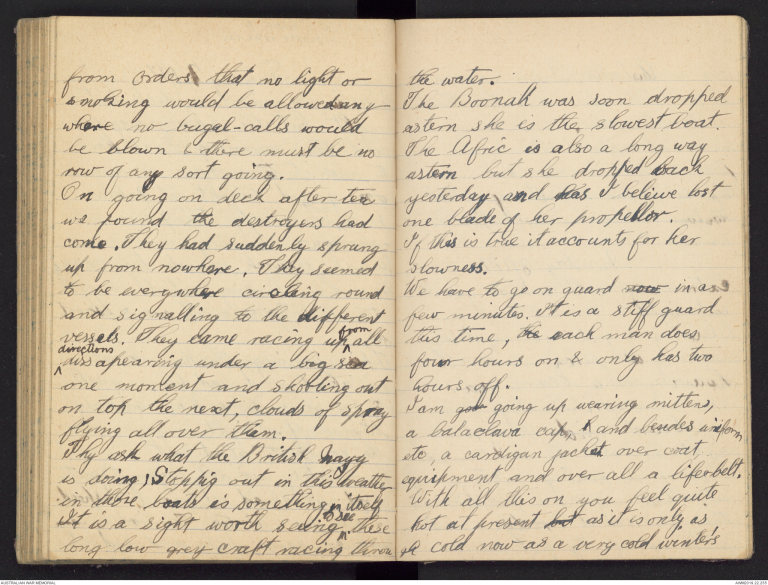 from orders that no light or
smoking would be allowed any
where no bugal-calls would
be blown & there must be no
row of any sort going.
On going on deck after tea
we found the destroyers had
come. They had suddenly sprung
up from nowhere. They seemed
to be everywhere circling round
and signalling to the different
vessels. They came racing up from all
directions dissapearing under a big sea
one moment and shooting out
on top the next, clouds of spray
flying all over them.
They ask what the British Navy
is doing, Stoppig out in this weather
in those boats is something in itself
It is a sight worth seeing to see these
long low grey craft racing throu
the water.
The Boonah was soon dropped
astern she is the slowest boat.
The Afric is also a long way
astern but she dropped back
yesterday and has I beleive lost
one blade of her propellor.
If this is true it accounts for her
slowness.
We have to go on guard now in a
few minutes. It is a stiff guard
this time, the each man does
four hours on & only has two
hours off.
I am goi going up wearing mittens,
a balaclava cap, and besides uniform
etc, a cardigan jacket over coat
equipment and over all a lifebelt.
With all this on you feel quite
hot at present but as it is only as
cold now as a very cold winter's
AUSTRALIAN WAR MEMORIAL